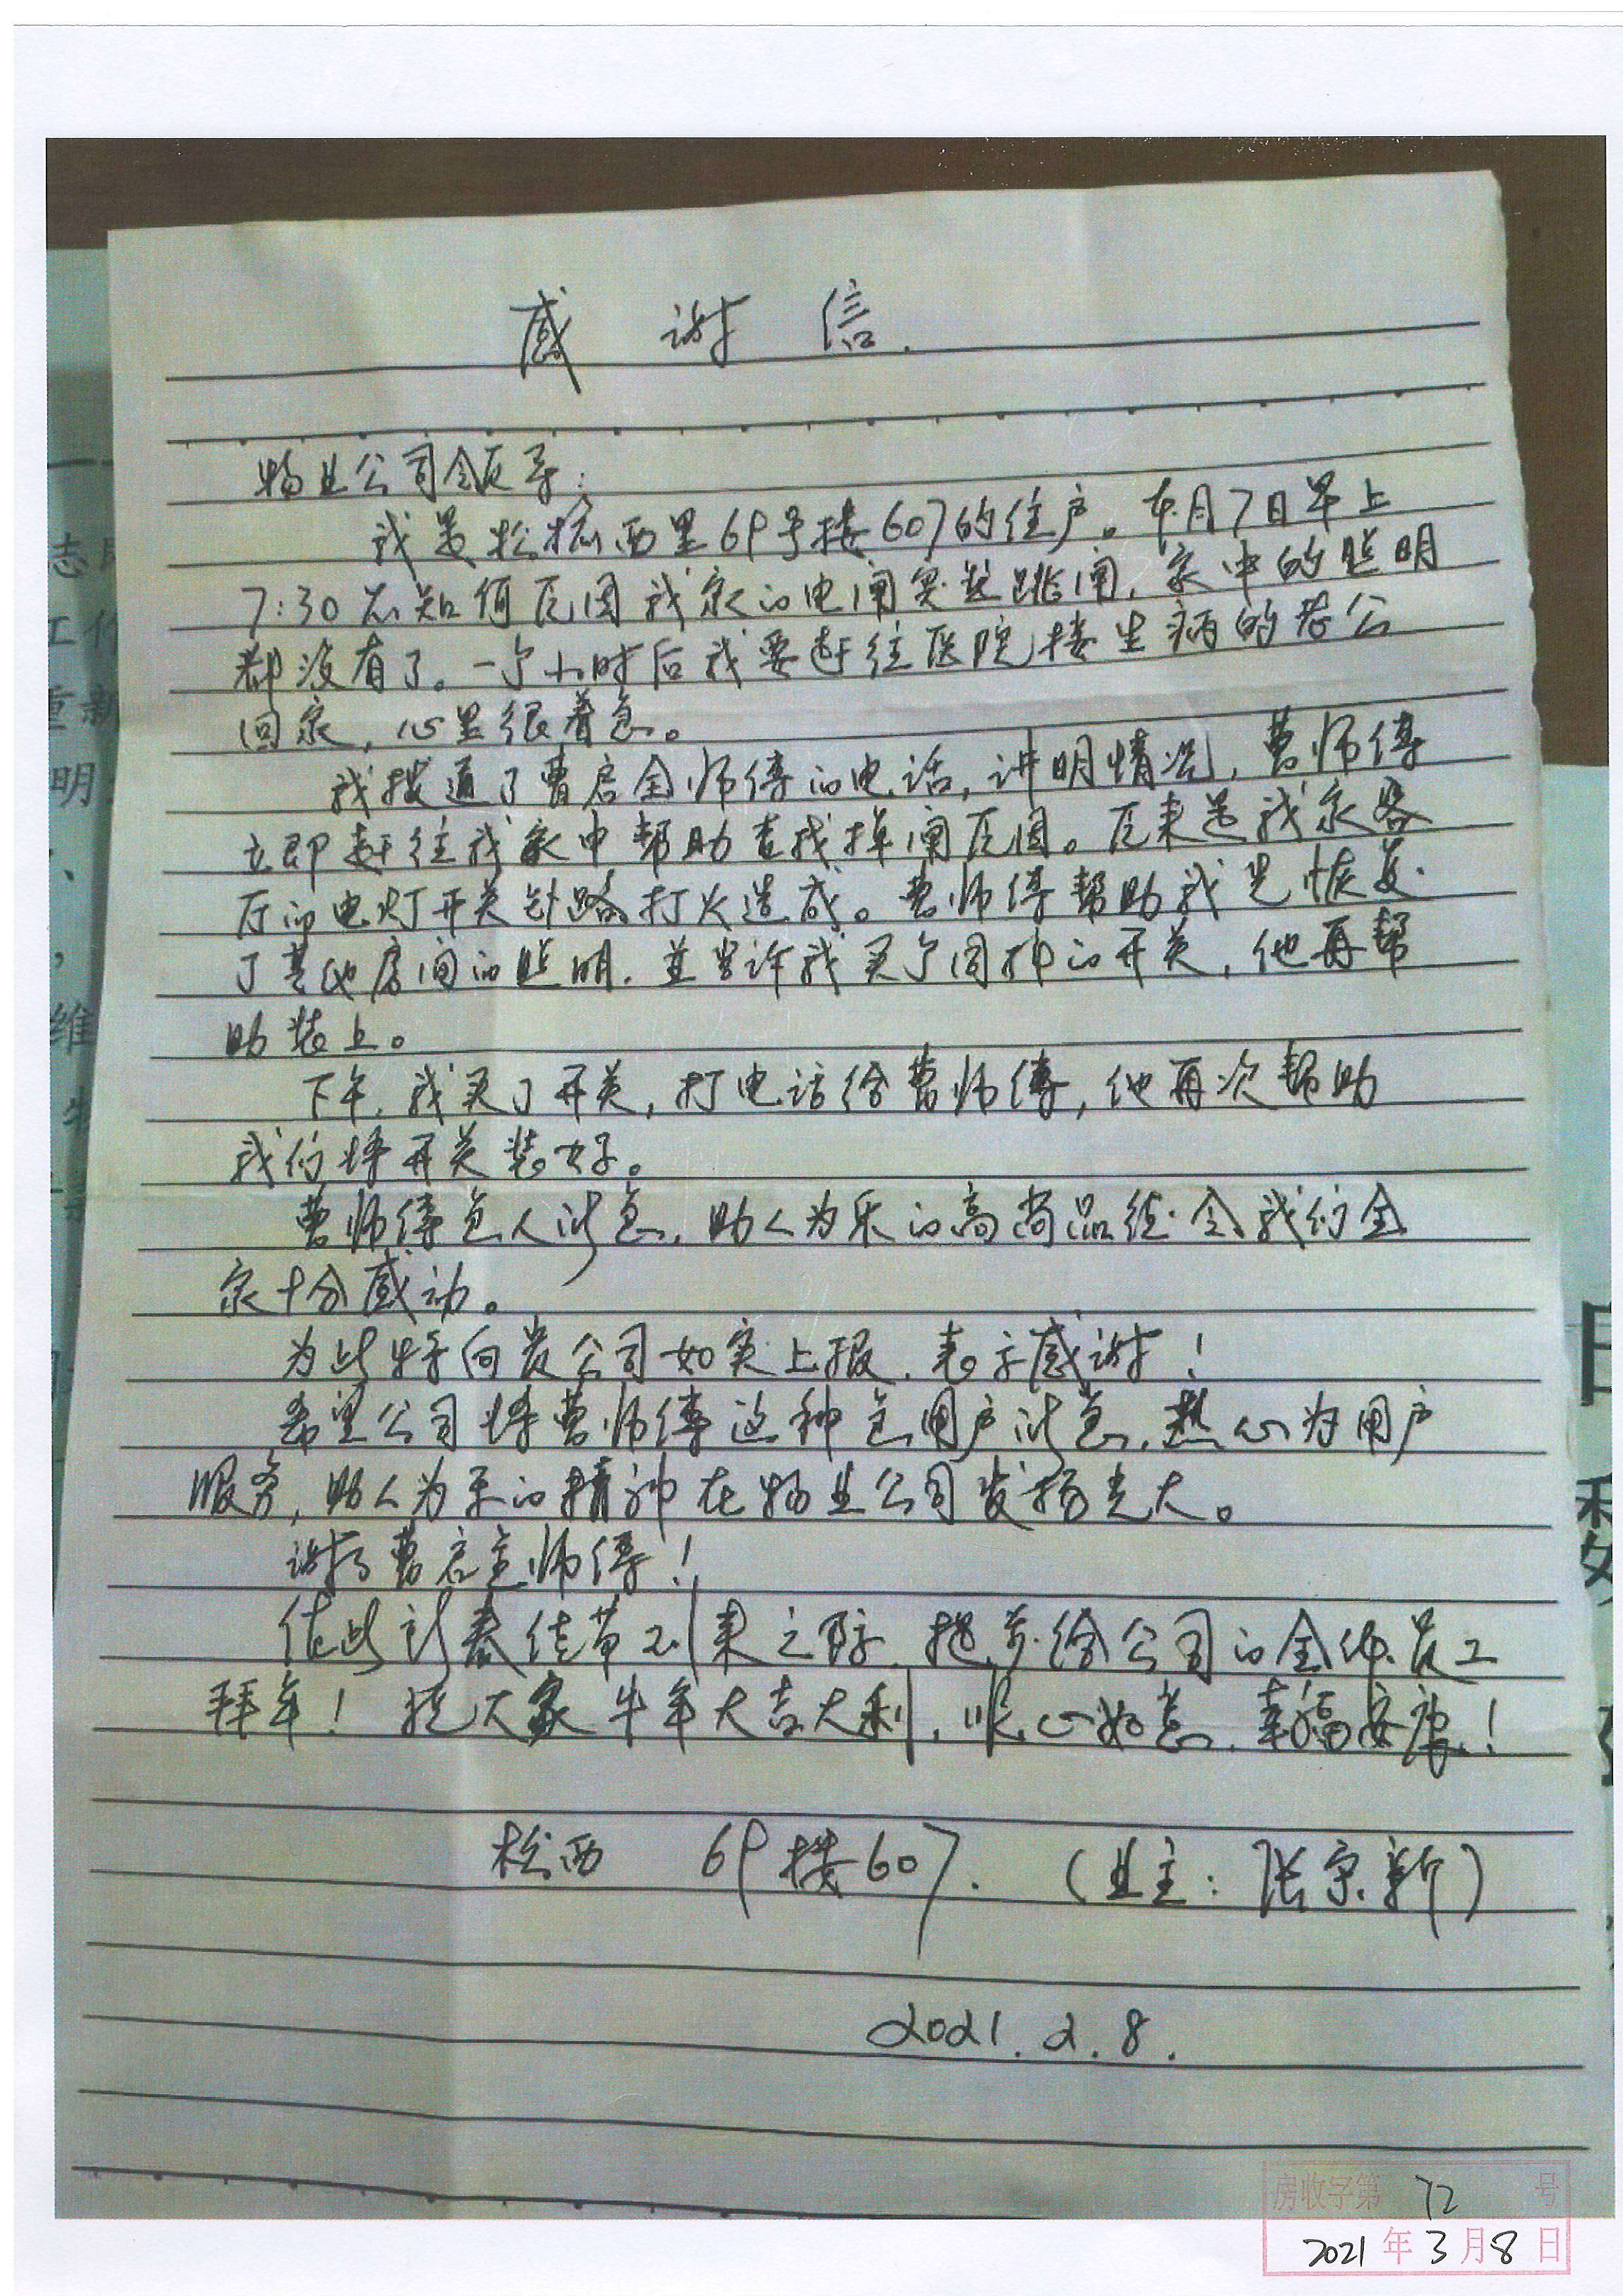 感谢信.
物业公司领导:
我是松榆西里69号楼607的住户。本月7日早上
7:30不知何原因我家的电闸突然跳闸,家中的照明
都没有了。一个小时后我要赶往医院接生病的老公
回家,心里很着急。
我拨通了曹启全师傅的电话,讲明情况,曹师傅
立即赶往我家中帮助查找掉闸原因。原来是我家客
厅的电灯开关短路打火造成。曹师傅帮助我先恢复
了其他房间的照明.并告诉我买个同样的开关,他再帮
助装上。
下午,我买了开关,打电话给曹师傅,他再次帮助
我们将开关装好。
曹师傅急人所急,助人为乐的高尚品德令我们全
家十分感动。
为此特向贵公司如实上报.表示感谢!
希望公司将曹师傅这种急用户所急,热心为用户
服务,助人为乐的精神在物业公司发扬光大。
谢谢曹启全师傅!
值此新春佳节到来之际.提前给公司的全体员工
拜年!祝大家牛年大吉大利,顺心如意,幸福安康!
松西 69楼607. (业主:张京新)
2021.2.8.
房收字第72号
2021年3月8日